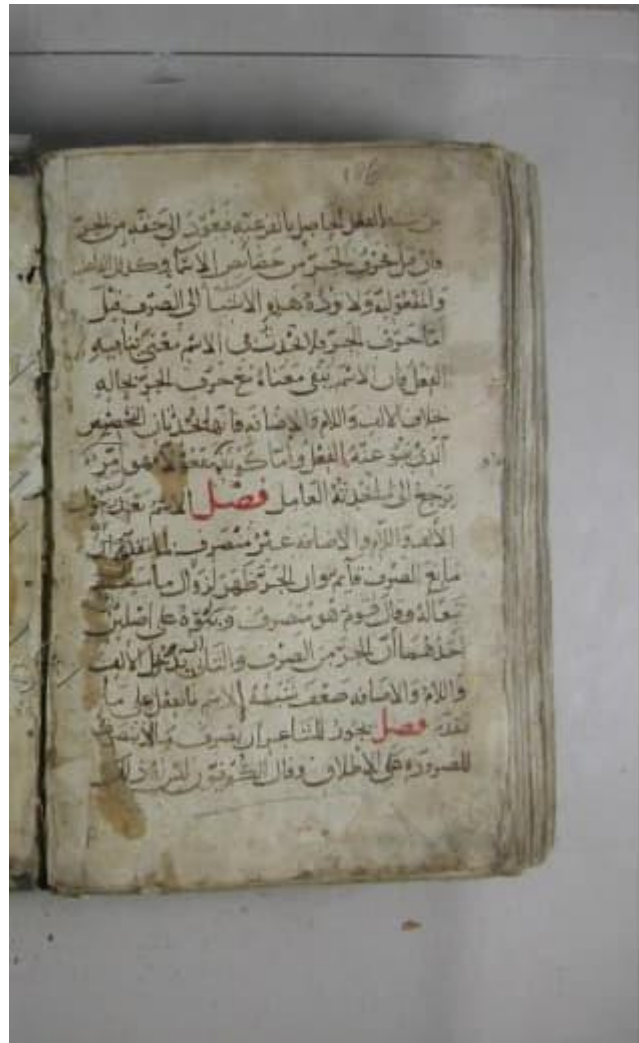 186
من شبه الفعل الحاصل بالفرعية فيعود الى حقه من الجر
فان قيل فحرف الجر من خصائص الاسماء وكذلك الفاعلية
والمفعولية ولا ترد هذه الاشياء الى الصرف قيل
اما حرف الجر فلا يحدث في الاسم معنى ينافيه
الفعل فان الاسم يبقى معناه مع حرف الجر بحاله
خلاف الالف واللام والاضافة فانهما يحدثان التخصيص
الذي ينبو عنه الفعل واما كونه
يرجع الى العامل فصل الاسم بعد دخول
الالف واللام والاضافة غير منصرف لما تقدم ان
مانع الصرف قائم وان الجر ظهر لزوال ما
تبعا له وقال قوم هو منصرف على اصلين
احدهما ان الجر من الصرف والثاني ان بدخول الالف
واللام والاضافة ضعف شبه الاسم بالفعل على ما
تقدم فصل يجوز للشاعر ان يصرف ما لا ينصرف
للضرورة على الاطلاق وقال الكوفيون ذلك